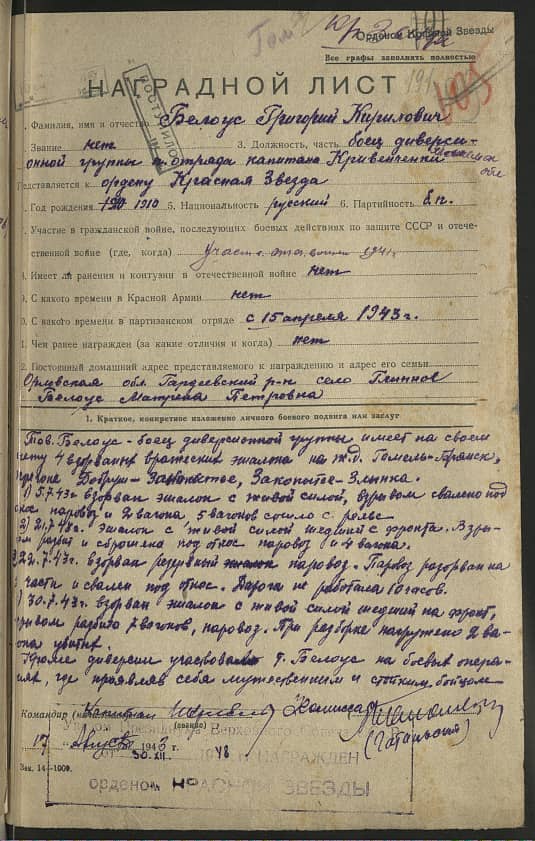 Орденом Красной Звезды
Все графы заполнять полностью
НАГРАДНОЙ ЛИСТ
ПОСТУПИЛО
. Фамилия, имя и отчество Белоус Григорий Кирилович
Звание нет 3. Должность, часть боец диверси-
онной группы отряда капитана Кривенченки
едставляется к ордену Красная Звезда
. Год рождения 1910 5. Национальность русский 6. Партийность б.п.
. Участие в гражданской войне, последующих боевых действиях по защите СССР и отече-
ственной войне (где, когда) участ. отеч. войны 1941г.
. Имеет ли ранения и контузии в отечественной войне нет
. С какого времени в Красной Армии нет
. С какого времени в партизанском отряде с 15 апреля 1943 г.
. Чем ранее награжден (за какие отличия и когда) нет
2. Постоянный домашний адрес представляемого к награждению и адрес его семьи
Орловская обл. Гардеевский р-н село Глинное
Белоус Матрена Петровна
1. Краткое, конкретное изложение личного боевого подвига или заслуг
Тов. Белоус - боец диверсионной группы имеет на своем
чету 4 взорванных вражеских эшалона на ж.д. Гомель-Брянск,
ерегоне Добруш- Закопытье, Закопытье-Злынка.
1) 5.7.43г взорван эшалон с живой силой, взрывом свалено под
кос паровоз и 2 вагона 5 вагонов сошло с рельс
2) 21.7.43г. эшалон с живой силой шедший с фронта. Взры-
ом разбит и сброшена под откос паровоз и 4 вагона.
23.7.43г. взорван резервный паровоз. Паровоз разорван на
части и свален под откос. Дорога не работала 10 часов.
) 30.7.43г взорван эшалон с живой силой шедший на фронт,
зрывом разбито 7 вагонов, паровоз. При разборке нагружено 2 ва-
она убитых.
Кроме диверсии участвовал т. Белоус на боевых опера-
иях, где проявлял себя мужественным и стойким бойцом
Командир Капитан Комиссар
(звание)
Указом Президиума Верховного Совета
17 " 1943 г.
от 30.XII. 1948 НАГРАЖДЕН
Зак. 14—1000.
орденом КРАСНОЙ ЗВЕЗДЫ